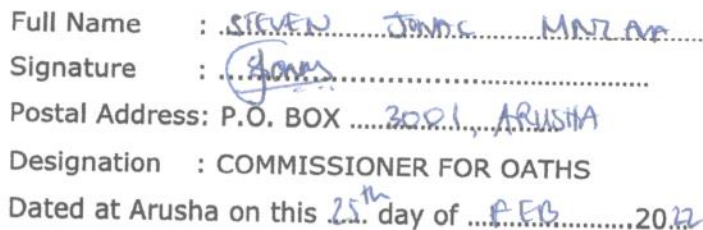 Full Name : STEVEN
Signature :
Postal Address: P.O. BOX 3001, ARUSHA
Designation : COMMISSIONER FOR OATHS
Dated at Arusha on this 25th day of FEB 2022